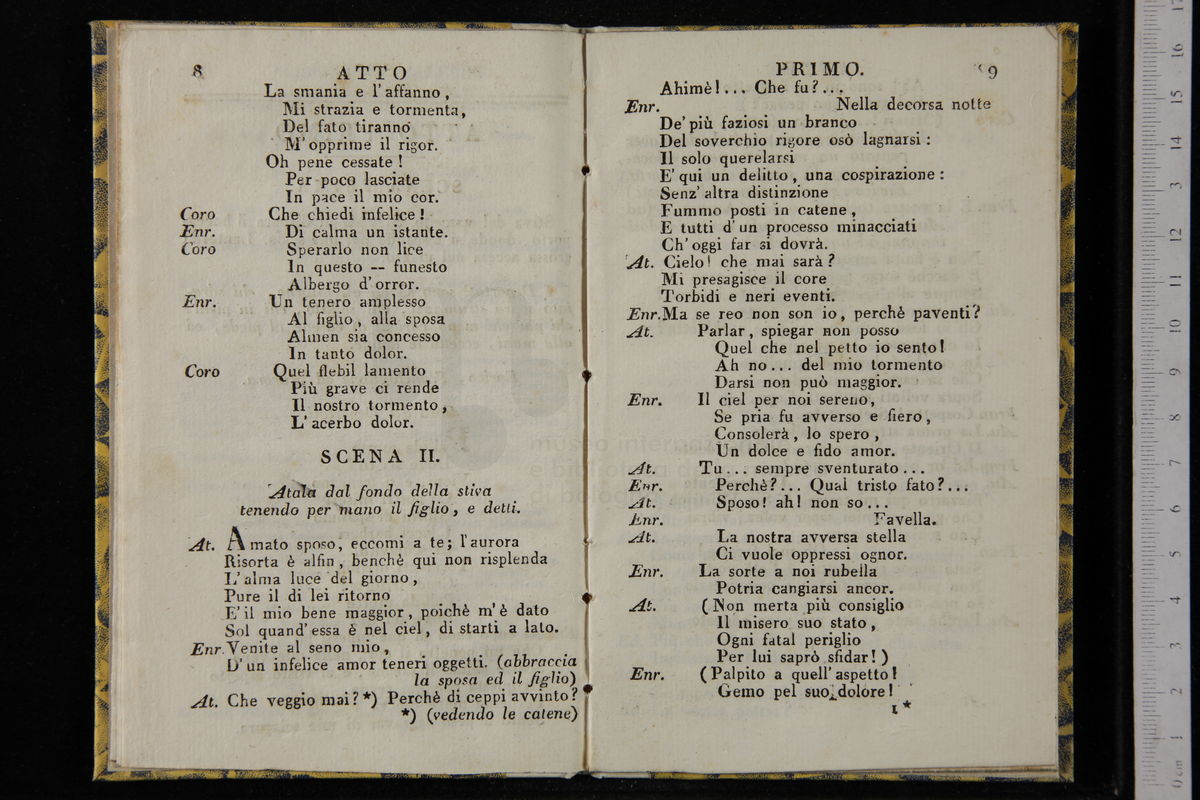 8 ATTO
La smania e l'affanno,
Mi strazia e tormenta,
Del fato tiranno
M'opprime il rigor.
Oh pene cessate!
Per poco lasciate
In pace il mio cor.
Coro Che chiedi infelice!
Enr. Di calma un istante.
Coro Sperarlo non lice
In questo -- funesto
Albergo d'orror.
Enr. Un tenero amplesso
Al figlio, alla sposa
Almen sia concesso
In tanto dolor.
Coro Quel flebil lamento
Più grave ci rende
Il nostro tormento,
L'acerbo dolor.
SCENA II.
Atala dal fondo della stiva
tenendo per mano il figlio, e detti.
At. Amato sposo, eccomi a te; l'aurora
Risorta è alfin, benchè qui non risplenda
L'alma luce del giorno,
Pure il di lei ritorno
E' il mio bene maggior, poichè m'è dato
Sol quand'essa è nel ciel, di starti a lato.
Enr. Venite al seno mio,
D'un infelice amor teneri oggetti. (abbraccia
la sposa ed il figlio)
At. Che veggio mai? *) Perchè di ceppi avvinto?
*) (vedendo le catene)
PRIMO. 9
Ahimè!... Che fu?...
Enr. Nella decorsa notte
De' più faziosi un branco
Del soverchio rigore osò lagnarsi:
Il solo querelarsi
E' qui un delitto, una cospirazione:
Senz'altra distinzione
Fummo posti in catene,
E tutti d'un processo minacciati
Ch'oggi far si dovrà.
At. Cielo! che mai sarà?
Mi presagisce il core
Torbidi e neri eventi.
Enr. Ma se reo non son io, perchè paventi?
At. Parlar, spiegar non posso
Quel che nel petto io sento!
Ah no... del mio tormento
Darsi non può maggior.
Enr. Il ciel per noi sereno,
Se pria fu avverso e fiero,
Consolerà, lo spero,
Un dolce e fido amor.
At. Tu... sempre sventurato...
Enr. Perchè?... Qual tristo fato?...
At. Sposo! ah! non so...
Enr. Favella.
At. La nostra avversa stella
Ci vuole oppressi ognor.
Enr. La sorte a noi rubella
Potria cangiarsi ancor.
At. (Non merta più consiglio
Il misero suo stato,
Ogni fatal periglio
Per lui saprò sfidar!)
Enr. (Palpito a quell'aspetto!
Gemo pel suo dolore!
1*